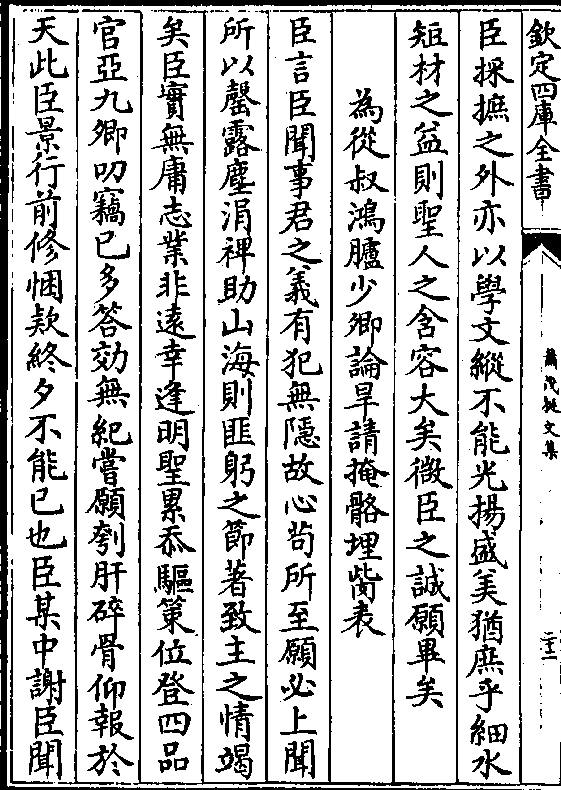 欽定四庫全書
蕭茂挺文集
二十二
臣採摭之外亦以學文縱不能光揚盛美猶庶乎細水
矩材之益則聖人之含容大矣微臣之誠願畢矣
為從叔鴻臚少卿論旱請掩骼埋胔表
臣言臣聞事君之義有犯無隱故心苟所至願必上聞
所以罄露塵涓裨助山海則匪躬之節著致主之情竭
矣臣實無庸志業非遠幸逢明聖累忝驅策位登四品
官亞九卿叨竊已多答効無紀嘗願刳肝碎骨仰報於
天此臣景行前修悃欵終夕不能已也臣某中謝臣聞